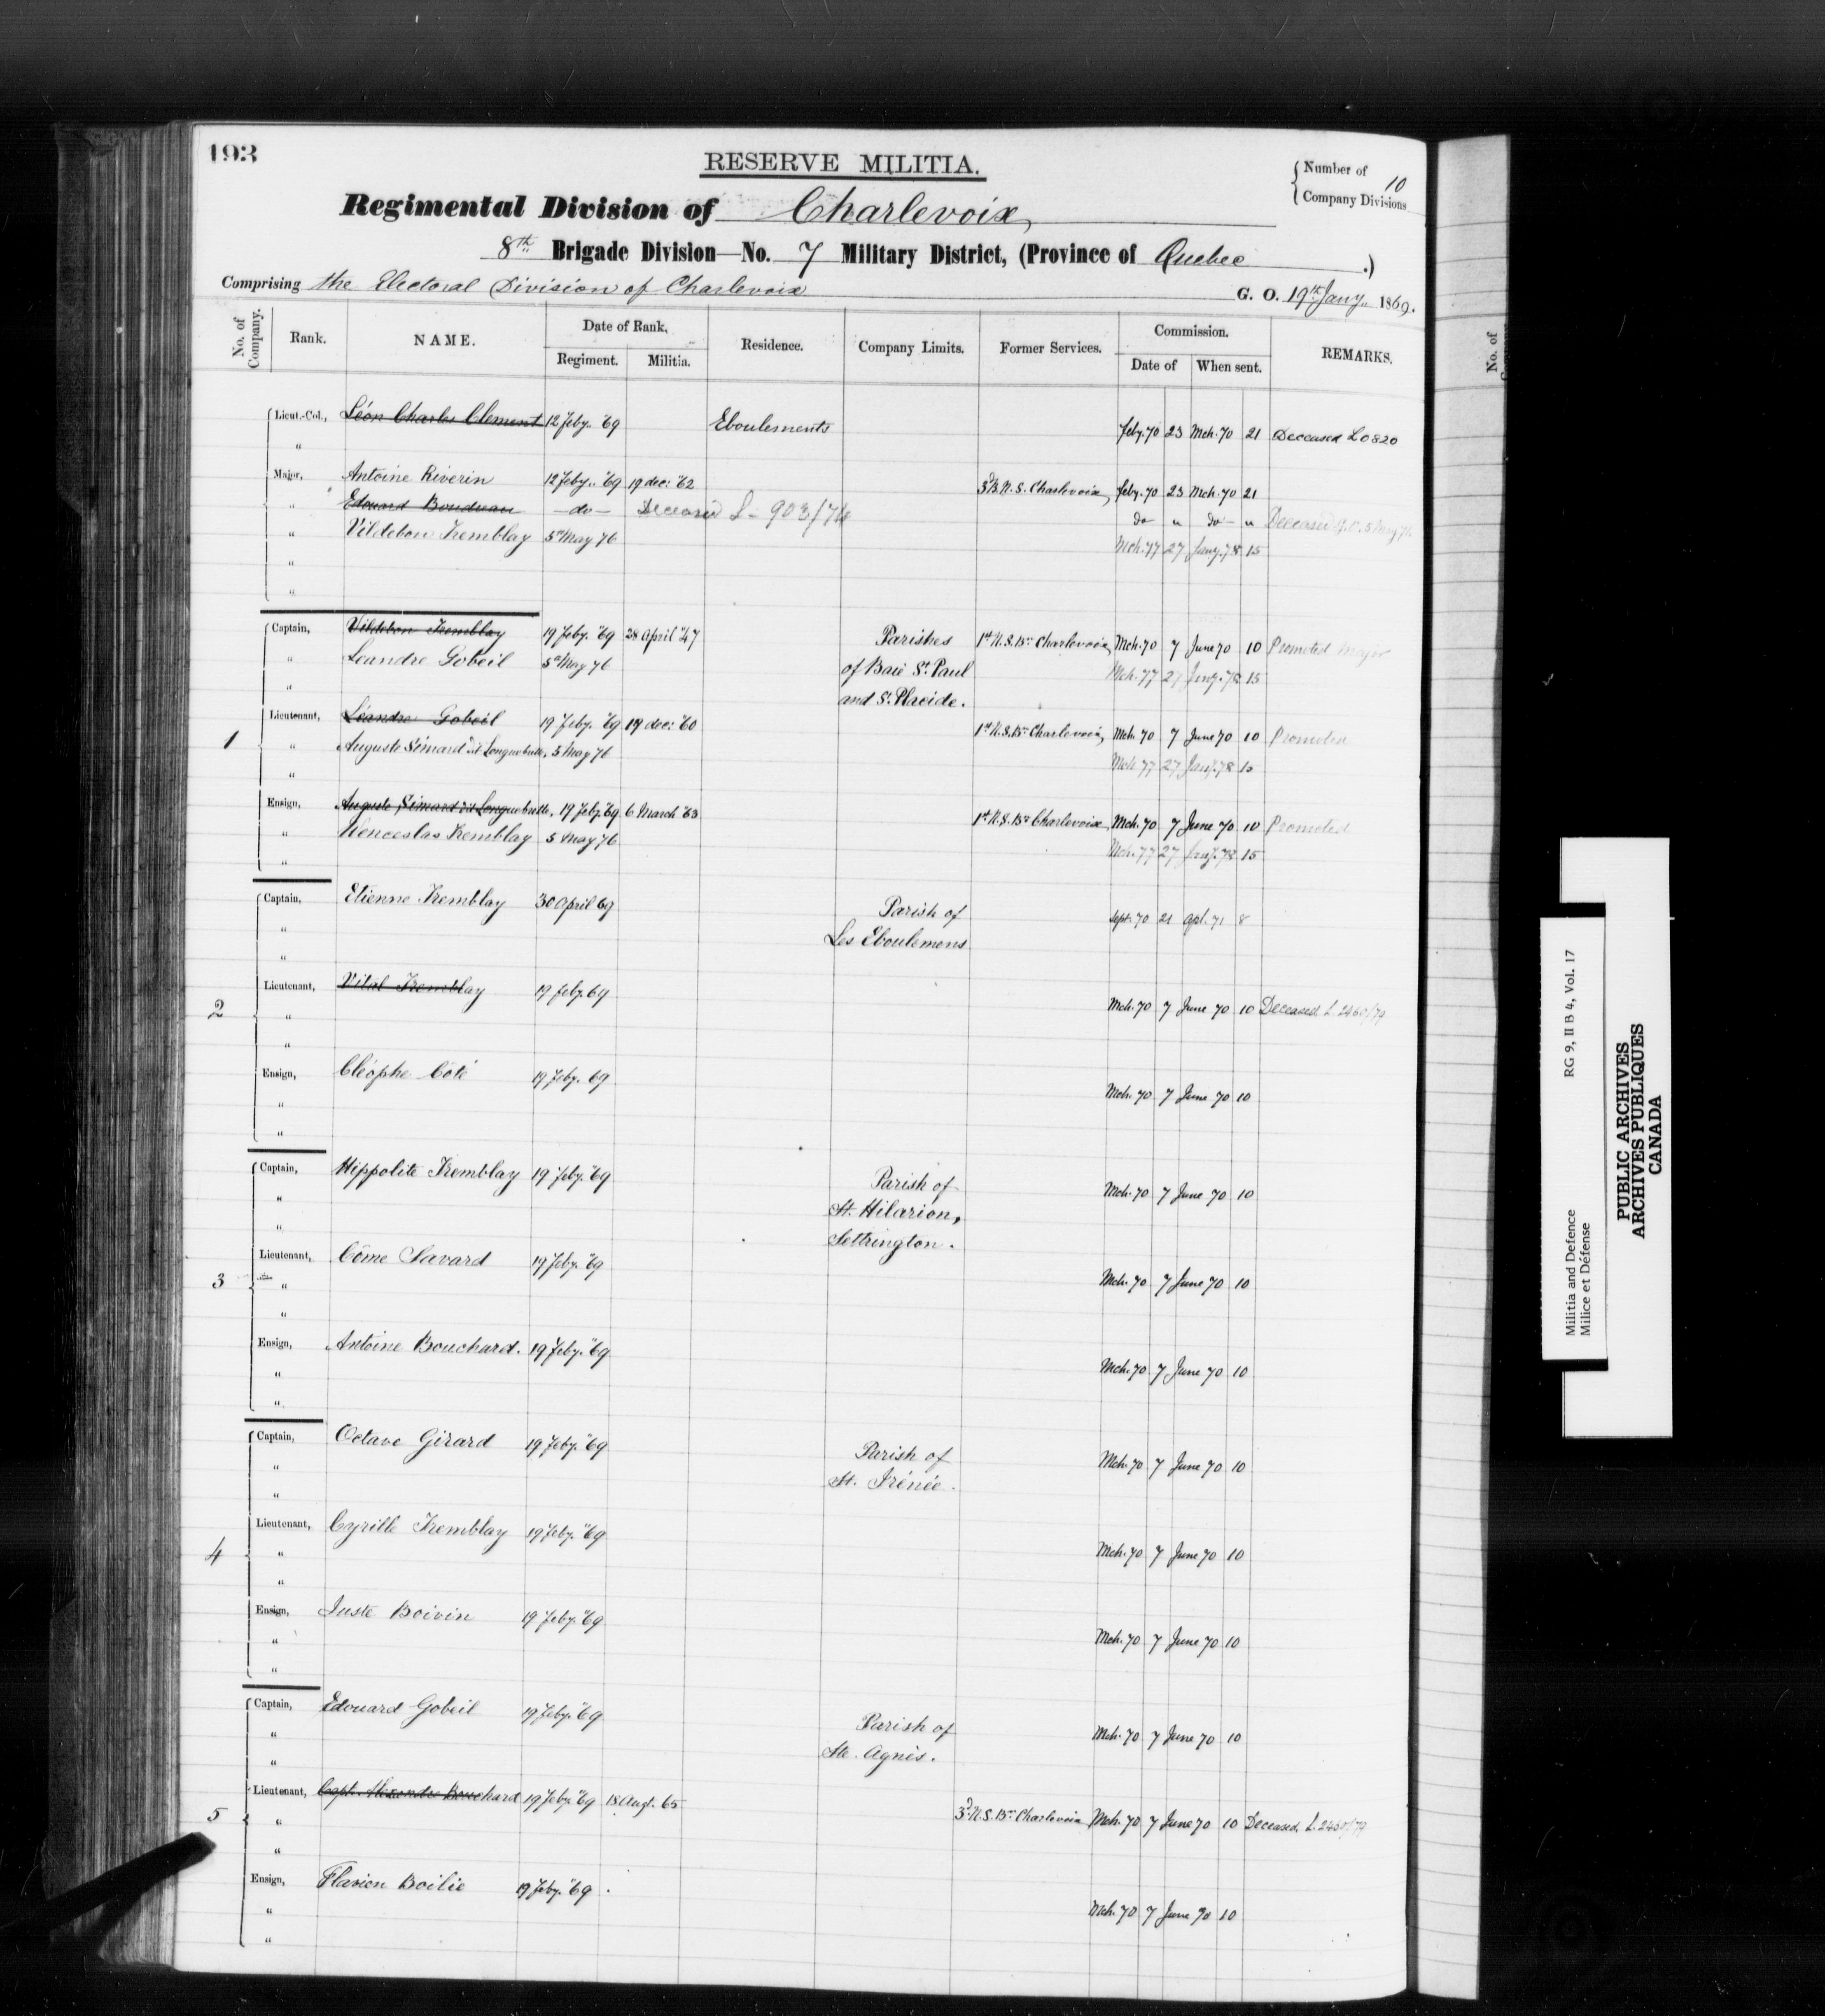 193
RESERVE MILITIA.
{ Number of Company Divisions 10
Regimental Division of Charlevoix
8th Brigade Division—No. 7 Military District, (Province of Quebec.)
Comprising the Electoral Division of Charlevoix G. O. 19th Jany. 1869.
No. of Company. Rank. NAME. Date of Rank. Residence. Company Limits. Former Services. Commission. REMARKS.
Regiment. Militia. Date of When sent.
Lieut.-Col., Léon Charles Clement 12 Feby. "69 Eboulements Feby. 70 23 Mch. 70 21 Deceased L0820
"
Major, Antoine Riverin 12 Feby. "69 19 dec: "62 3d B. N. S. Charlevoix, Feby. 70 23 Mch. 70 21
" Edouard Boudreau —do— Deceased L- 903/74 do " do " Deceased G.O. 5 May 76
" Vildebon Tremblay 5 May 76 Mch. 77 27 Jany. 78 15
"
"
Captain, Vildebon Tremblay 19 Feby. "69 28 April "47 Parishes 1st N.S. Bn Charlevoix, Mch. 70 7 June 70 10 Promoted Major
" Leandre Gobeil 5 May 76 of Baie St. Paul Mch. 77 27 Jany. 78 15
" and St. Placide.
Lieutenant, Léandre Gobeil 19 Feby. "69 19 dec: "60 1st N.S. Bn Charlevoix, Mch. 70 7 June 70 10 Promoted
1 " Auguste Simard dit Longuebute, 5 May 76 Mch. 77 27 Jany. 78 15
"
Ensign, Auguste Simard dit Longuebutte, 19 Feby. "69 6 March "63 1st N.S. Bn Charlevoix, Mch. 70 7 June 70 10 Promoted
" Wenceslas Tremblay 5 May 76 Mch. 77 27 Jany. 78 15
"
Captain, Etienne Tremblay 30 April 69 Parish of Sept. 70 21 Apl. 71 8
" Les Eboulemens
"
Lieutenant, Vital Tremblay 19 Feby. 69 Mch. 70 7 June 70 10 Deceased L. 2460/79
2 "
"
Ensign, Cléophe Côté 19 Feby. 69 Mch. 70 7 June 70 10
"
"
Captain, Hippolite Tremblay 19 Feby. "69 Parish of Mch. 70 7 June 70 10
" St. Hilarion,
" Settrington.
Lieutenant, Côme Savard 19 Feby. "69 Mch. 70 7 June 70 10
3 "
"
Ensign, Antoine Bouchard. 19 Feby. "69 Mch. 70 7 June 70 10
"
"
Captain, Octave Girard 19 Feby. "69 Parish of Mch. 70 7 June 70 10
" St. Irénée.
"
Lieutenant, Cyrille Tremblay 19 Feby. "69 Mch. 70 7 June 70 10
4 "
"
Ensign, Juste Boivin 19 Feby. "69 Mch. 70 7 June 70 10
"
"
Captain, Edouard Gobeil 19 Feby. "69 Parish of Mch. 70 7 June 70 10
" Ste. Agnès.
"
Lieutenant, Capt. Alexandre Bouchard 19 Feby. "69 18 Augt. 65 3d N.S. Bn Charlevoix Mch. 70 7 June 70 10 Deceased L. 2460/79
5 "
"
Ensign, Flavien Boilie 19 Feby. "69. Mch. 70 7 June 70 10
"
"
No. of
Militia and Defence RG 9, II B 4, Vol. 17
Milice et Défense
PUBLIC ARCHIVES
ARCHIVES PUBLIQUES
CANADA